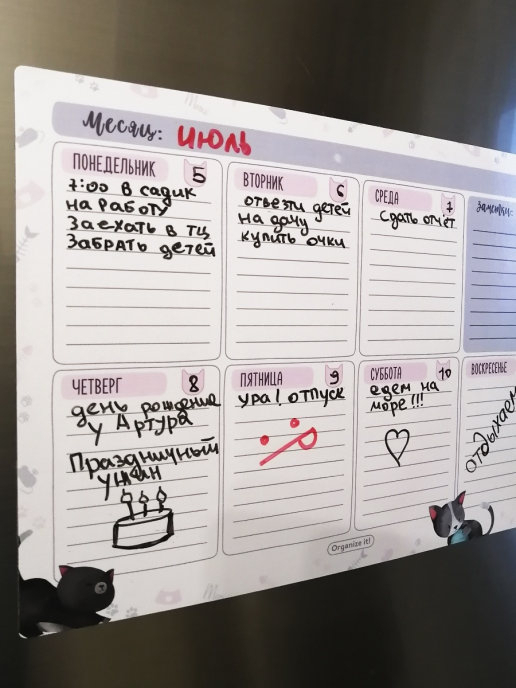 Месяц: ИЮЛЬ
ПОНЕДЕЛЬНИК 5
7:00 в садик
на работу
Заехать в ТЦ
Забрать детей
ВТОРНИК 6
отвезти детей
на дачу
купить очки
СРЕДА 7
Сдать отчёт
заметки:
ЧЕТВЕРГ 8
день рождения
у Артура
Праздничный
ужин
ПЯТНИЦА 9
Ура! отпуск
СУББОТА 10
едем на
море!!!
ВОСКРЕСЕНЬЕ
отдыхаем
Organize it!